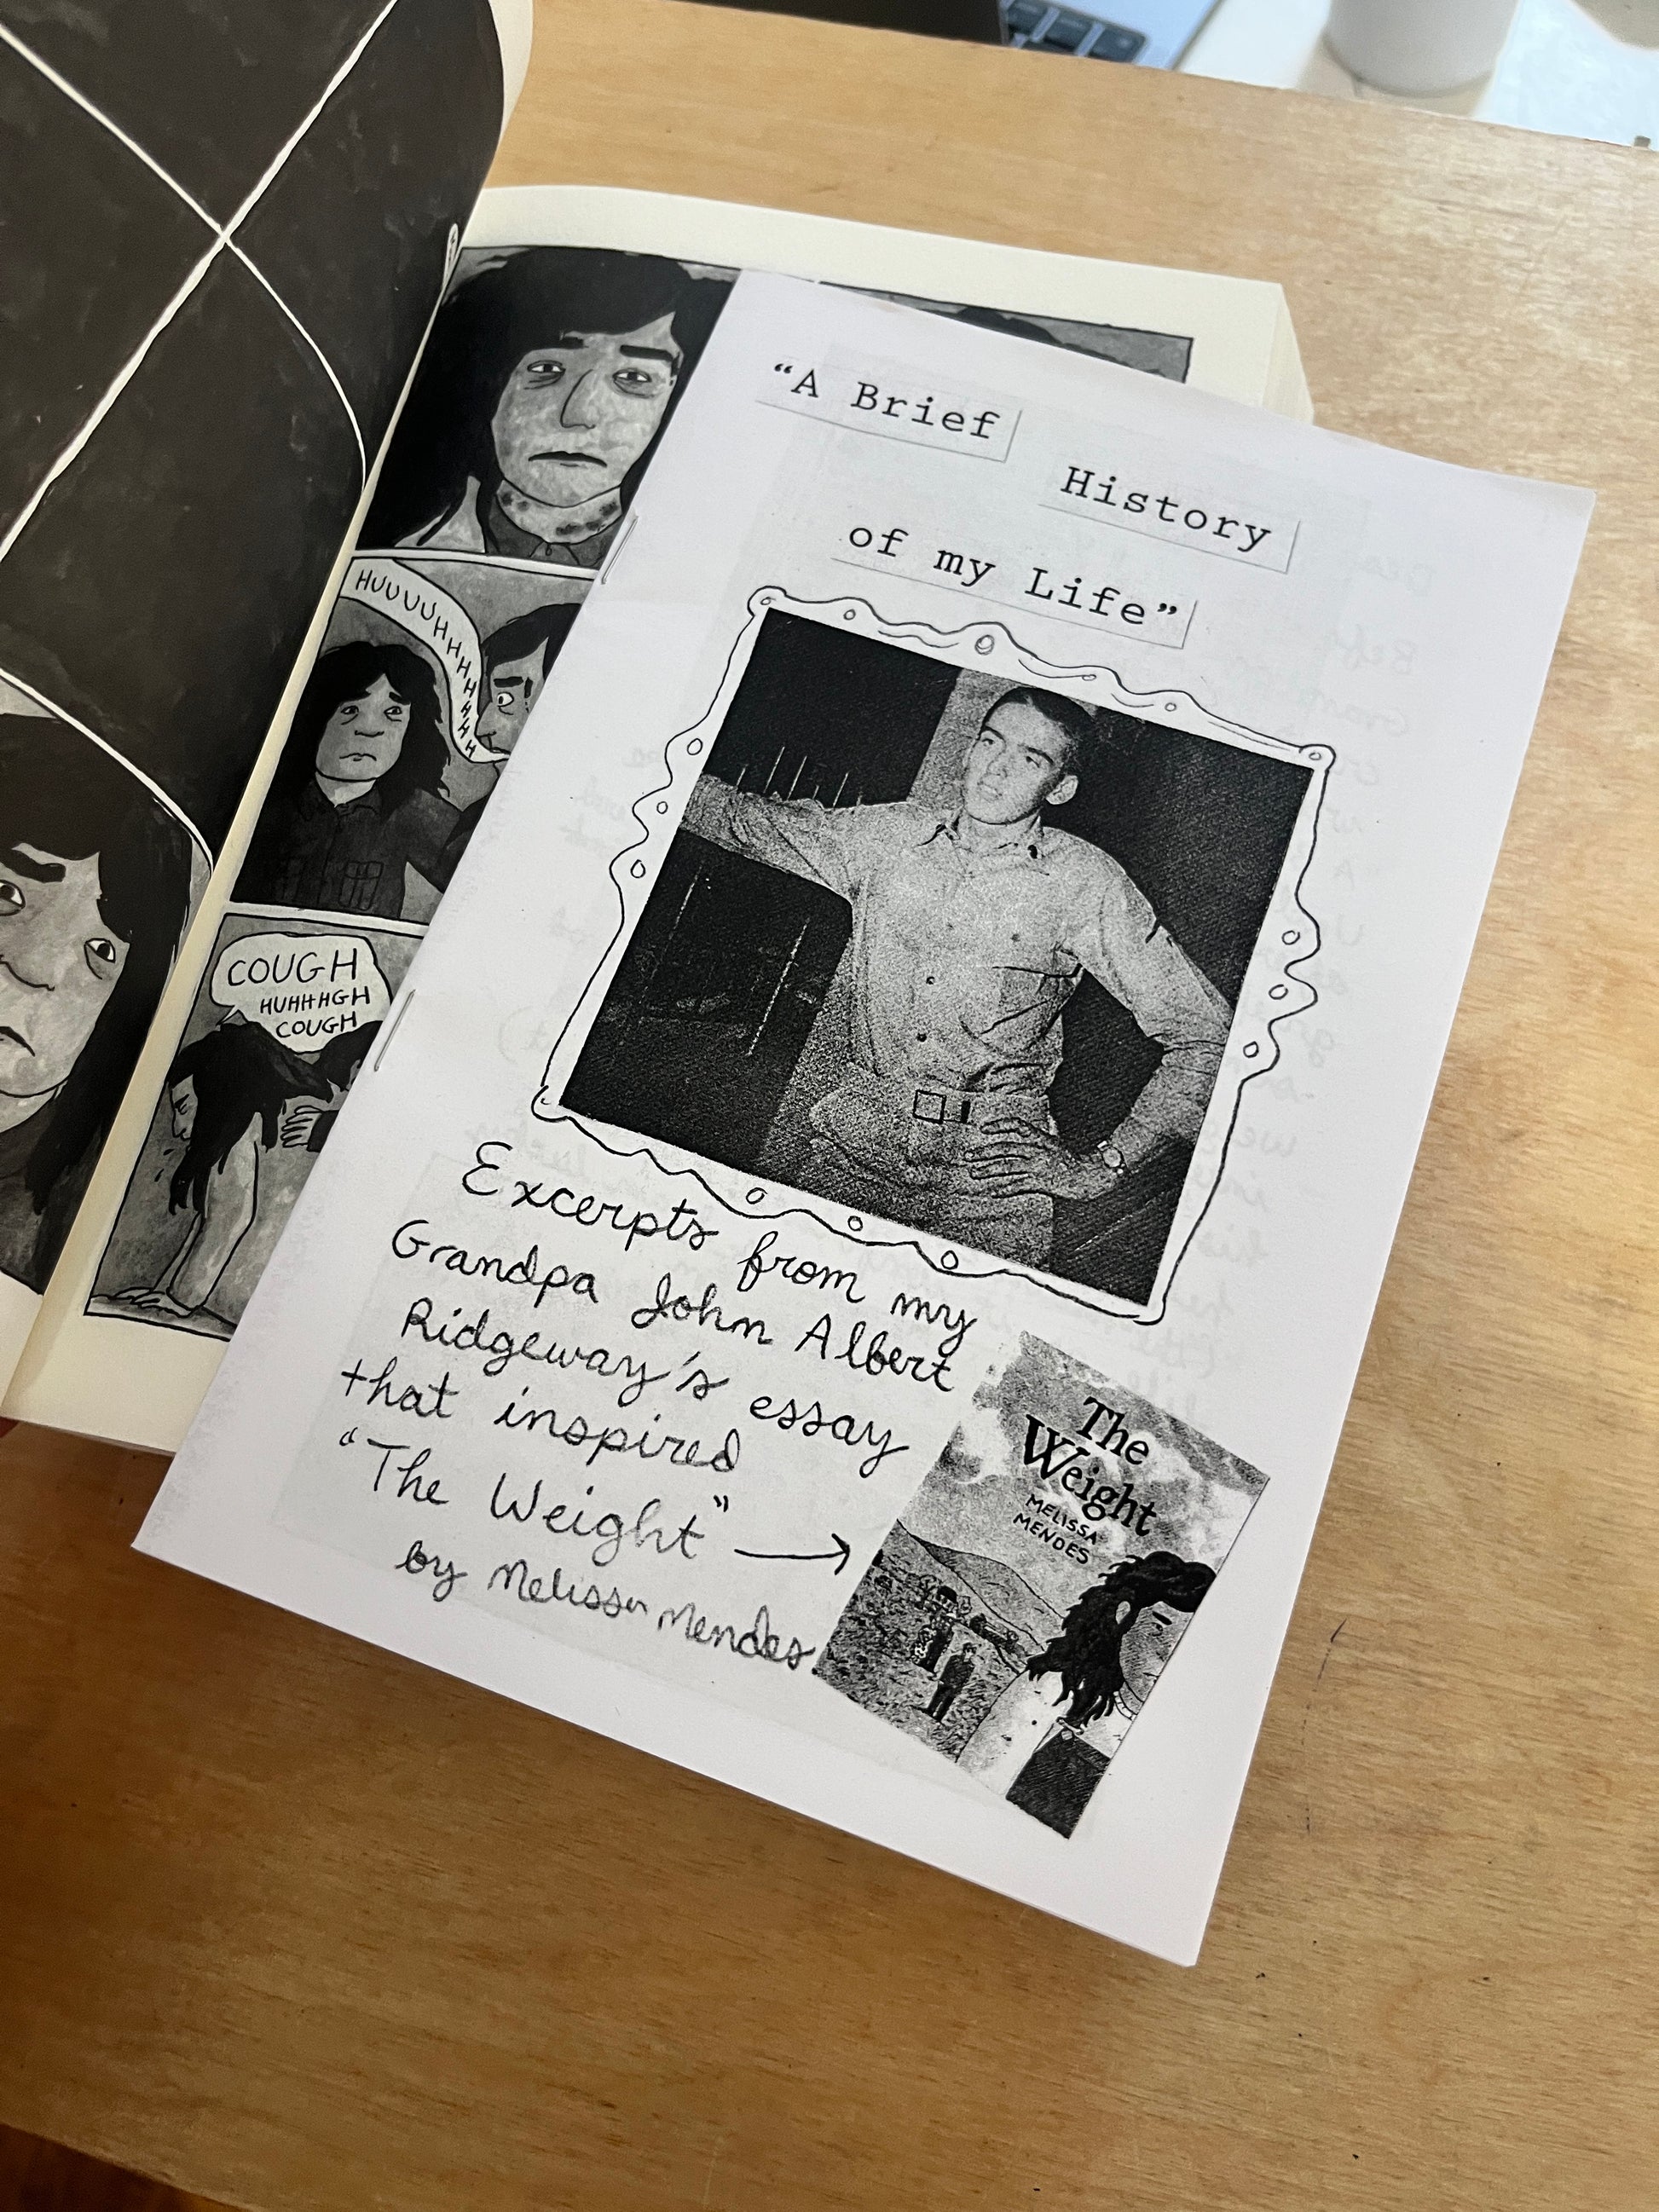 HUUUUHHHHHHHH
COUGH
HUHHHGH
COUGH
“A Brief
History
of my Life”
Excerpts from my
Grandpa John Albert
Ridgeway's essay
that inspired
“The Weight”
by Melissa Mendes.
The
Weight
MELISSA
MENDES